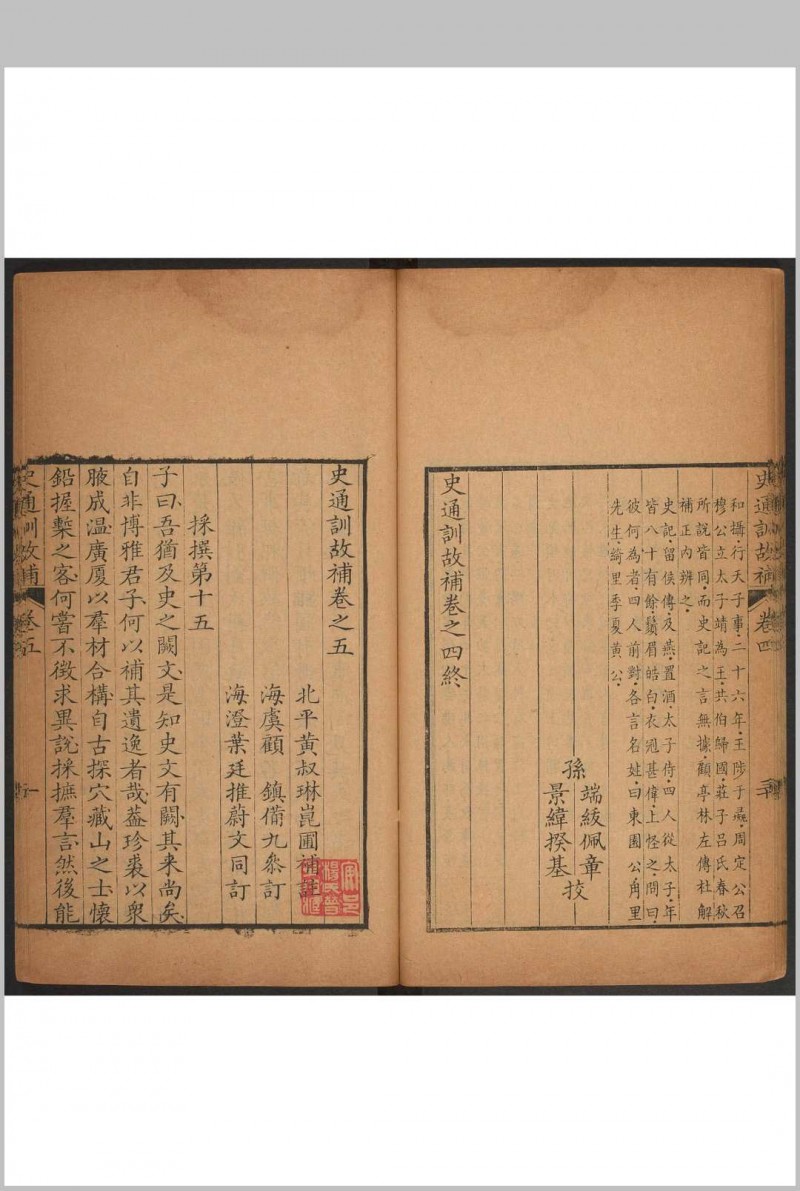 史通訓故補 卷四
和攝行天子事二十六年王陟于彘周定公召
穆公立太子靖為王共伯歸國莊子呂氏春秋
所說皆同而史記之言無據顧亭林左傳杜解
補正內辨之
史記留侯傳及燕置酒太子侍四人從太子年
皆八十有餘鬚眉皓白衣冠甚偉上怪之問曰
彼何為者四人前對各言名姓曰東園公甪里
先生綺里季夏黃公
孫 端綏佩章 校
景緯揆基
史通訓故補卷之四終
史通訓故補卷之五
北平黃叔琳崑圃補註
海虞顧 鎮備九叅訂
海澄葉廷推蔚文同訂
採撰第十五
子曰吾猶及史之闕文是知史文有闕其来尚矣
自非博雅君子何以補其遺逸者哉葢珍裘以衆
腋成温廣厦以羣材合構自古探穴藏山之士懷
鉛握槧之客何嘗不徴求異說採摭羣言然後能
史通訓故補 卷五 一